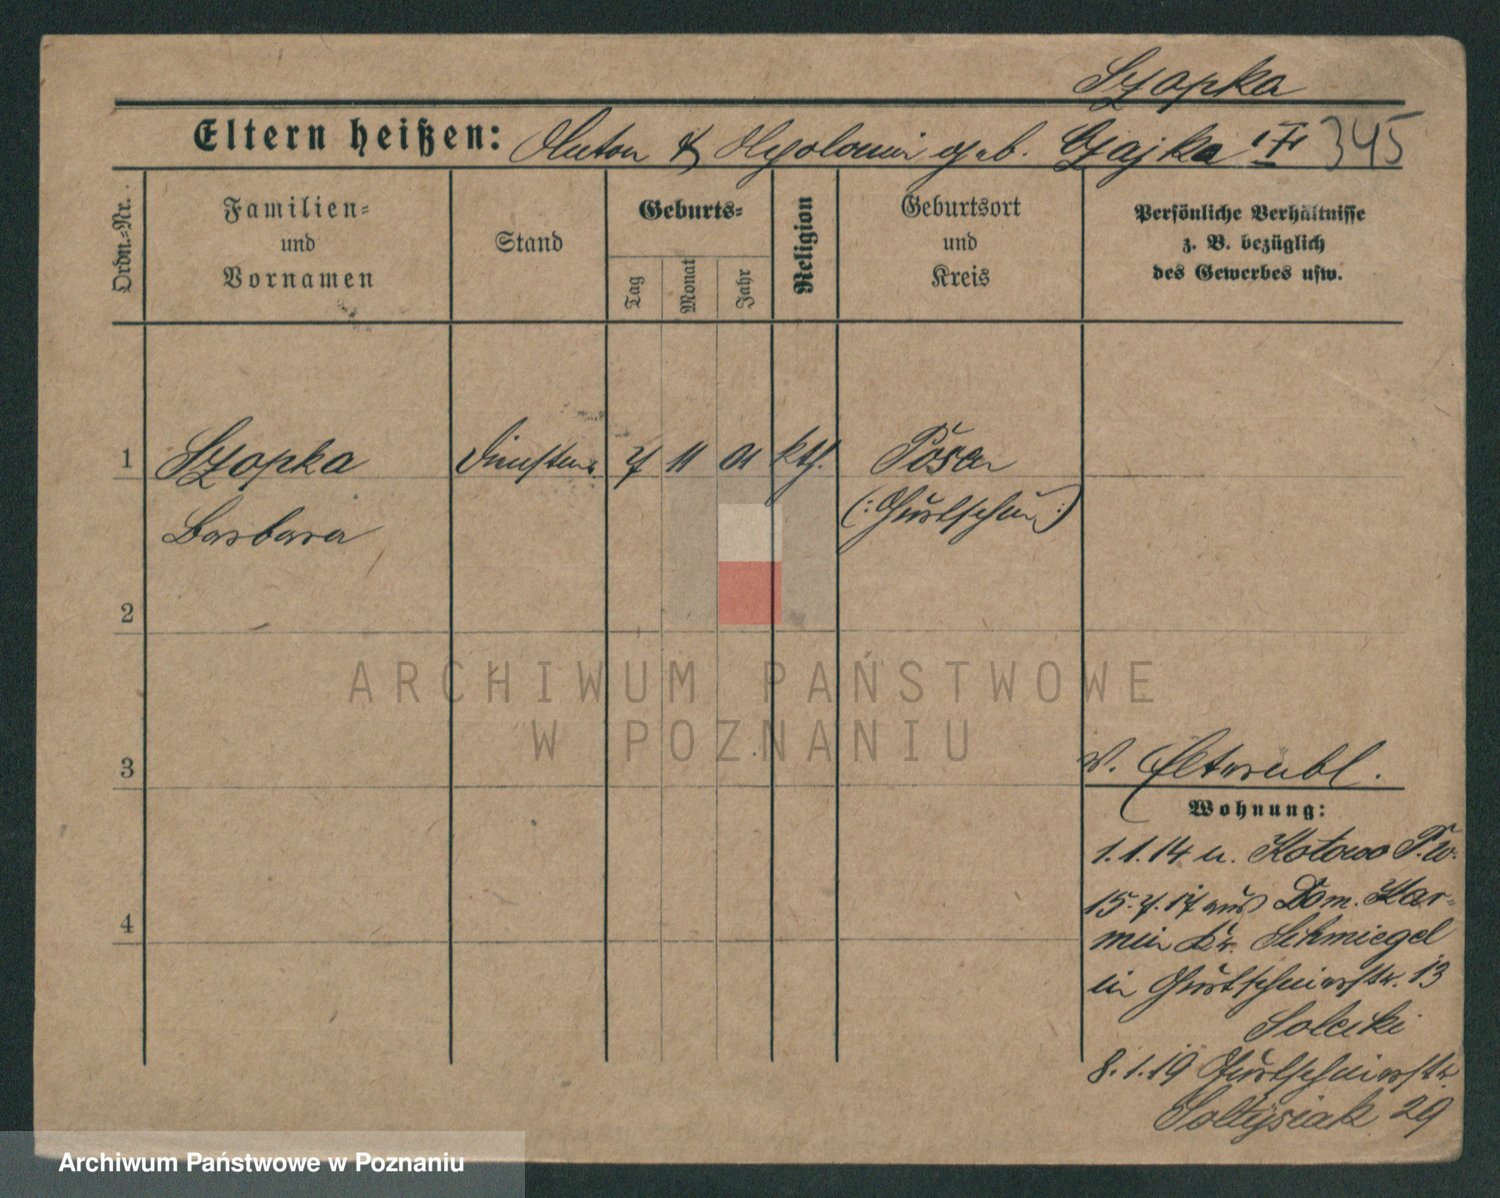 Szopka
Eltern heißen: Anton & Apolonia geb. Czajka 345
Ordn.-Nr.
Familien-
und
Vornamen
Stand
Geburts-
Tag
Monat
Jahr
Religion
Geburtsort
und
Kreis
Persönliche Verhältnisse
z. B. bezüglich
des Gewerbes usw.
1 Szopka 7 11 01 kth. Posen
Barbara (: Gurtschin :)
2
3
v. Elternbl.
Wohnung:
1.1.14 n. Kotowo P.W.
4
15.7.17 aus Dom. Kar-
min Kr. Schmiegel
in Gurtschinerstr. 13
Solecki
8.1.19 Gurtschinerstr.
Soltysiak 29
ARCHIWUM PAŃSTWOWE
W POZNANIU
Archiwum Państwowe w Poznaniu